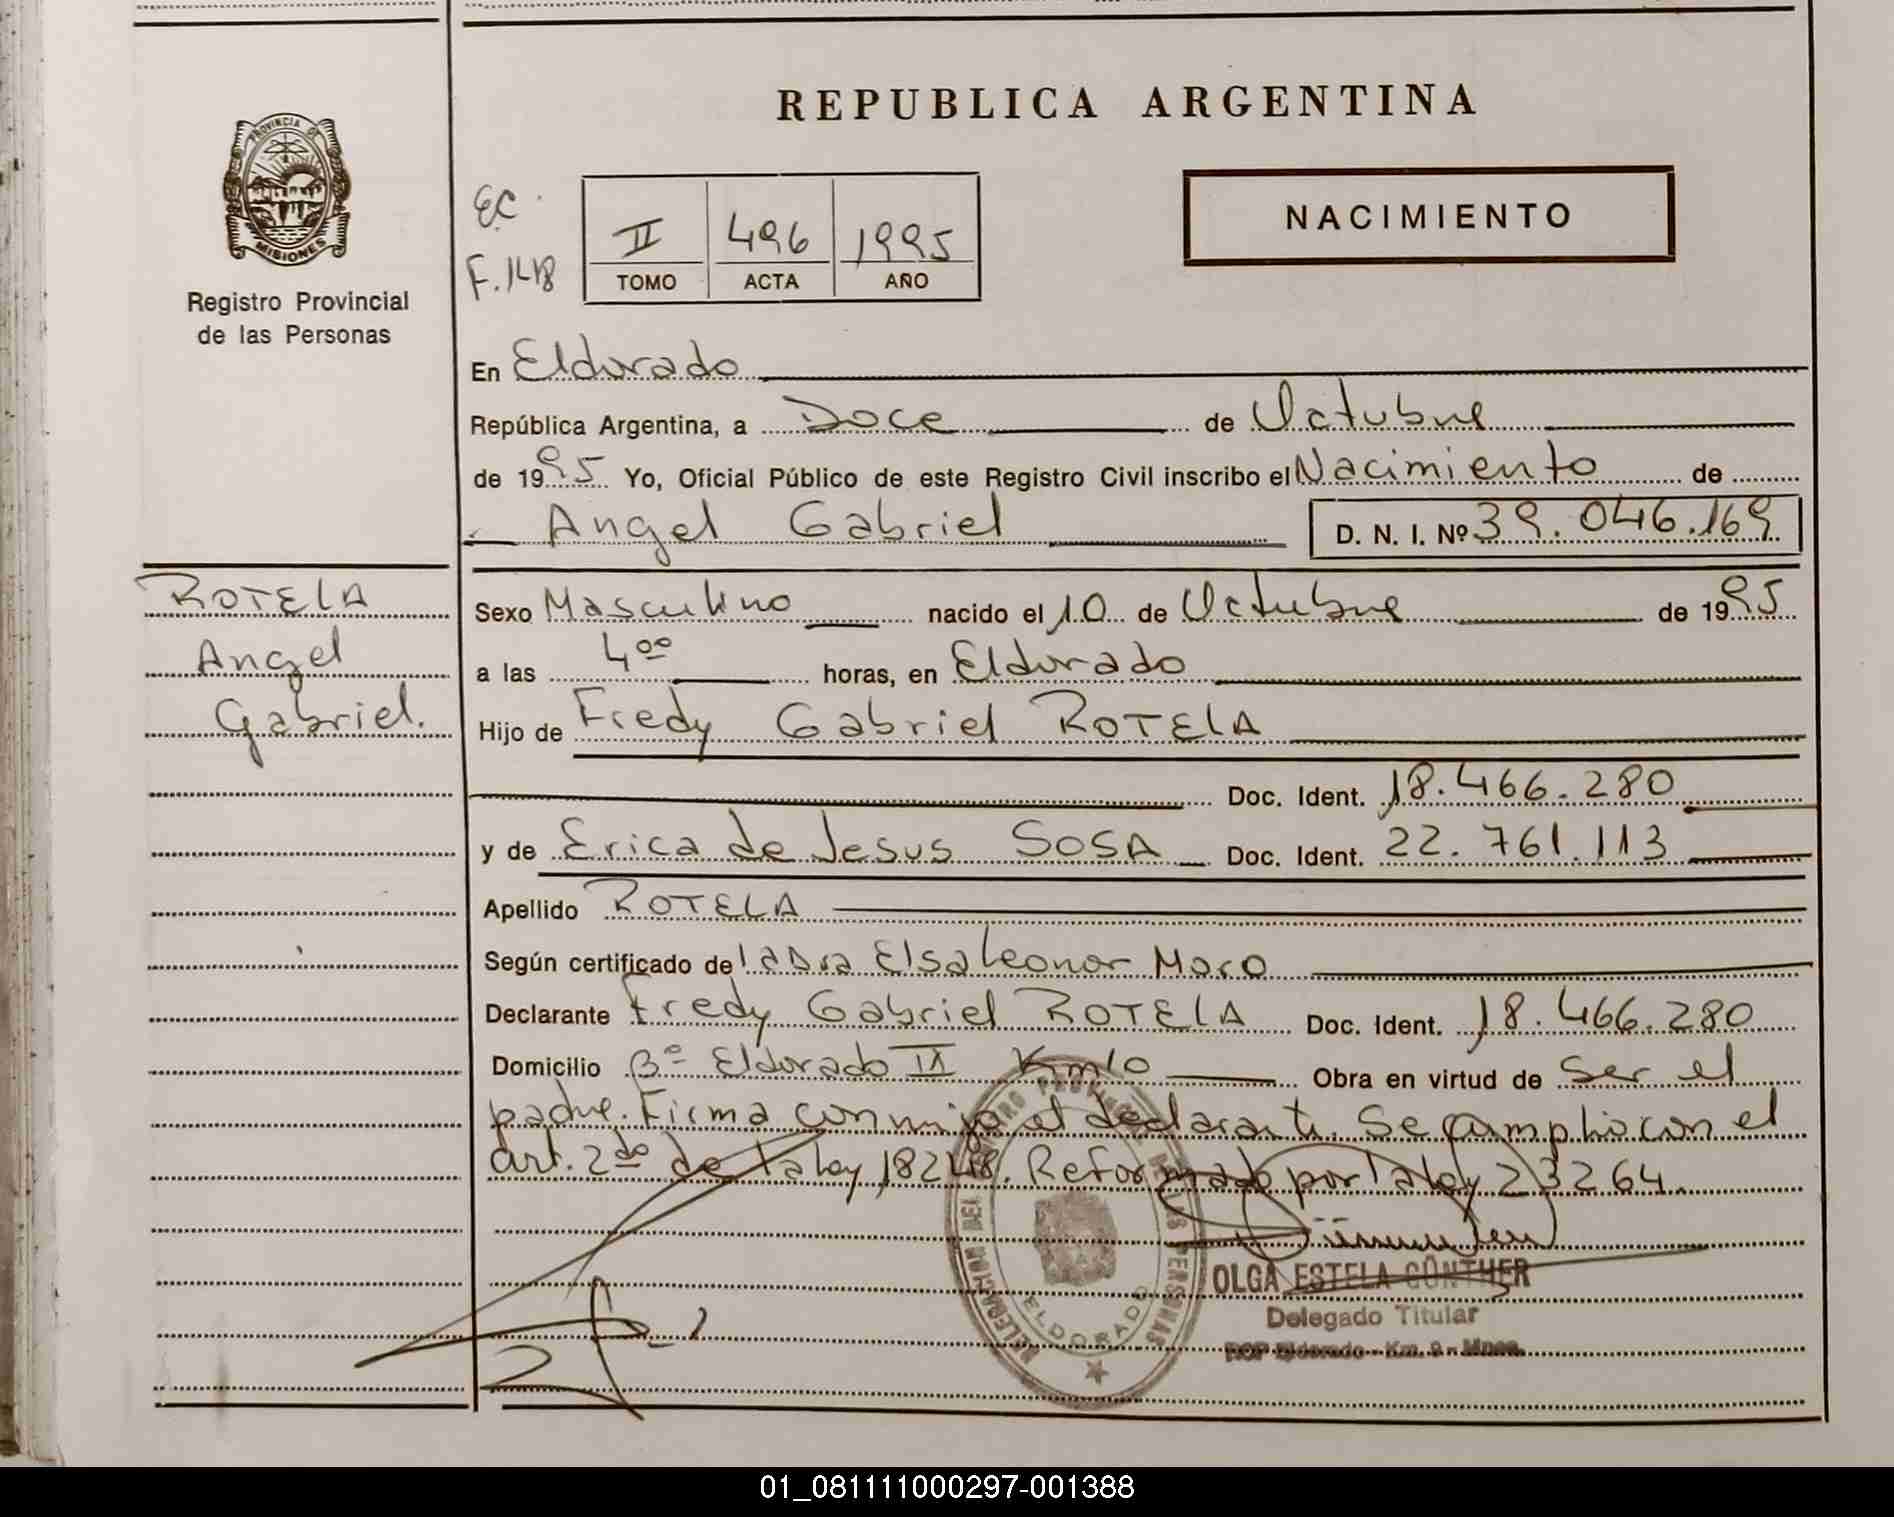 REPUBLICA ARGENTINA
PROVINCIA DE
MISIONES
Registro Provincial
de las Personas
E.C.
F. 148
II 496 1995
TOMO ACTA AÑO
NACIMIENTO
En Eldorado
República Argentina, a Doce de Octubre
de 1995 Yo, Oficial Público de este Registro Civil inscribo el Nacimiento de
Angel Gabriel D. N. I. Nº 39.046.169
ROTELA
Angel
Gabriel.
Sexo Masculino nacido el 10 de Octubre de 1995
a las 4oo horas, en Eldorado
Hijo de Fredy Gabriel ROTELA
Doc. Ident. 18.466.280
y de Erica de Jesus SOSA Doc. Ident. 22.761.113
Apellido ROTELA
Según certificado de la Dra Elsa Leonor Moro
Declarante Fredy Gabriel ROTELA Doc. Ident. 18.466.280
Domicilio Bº Eldorado II Km 10 Obra en virtud de Ser el
padre. Firma conmigo el declarante. Se cumplio con el
art. 2do de la ley 18248. Reformado por la ley 23264.
ELDORADO
OLGA ESTELA GÜNTHER
Delegado Titular
RCP Eldorado - Km. 9 - Mnes.
01_081111000297-001388